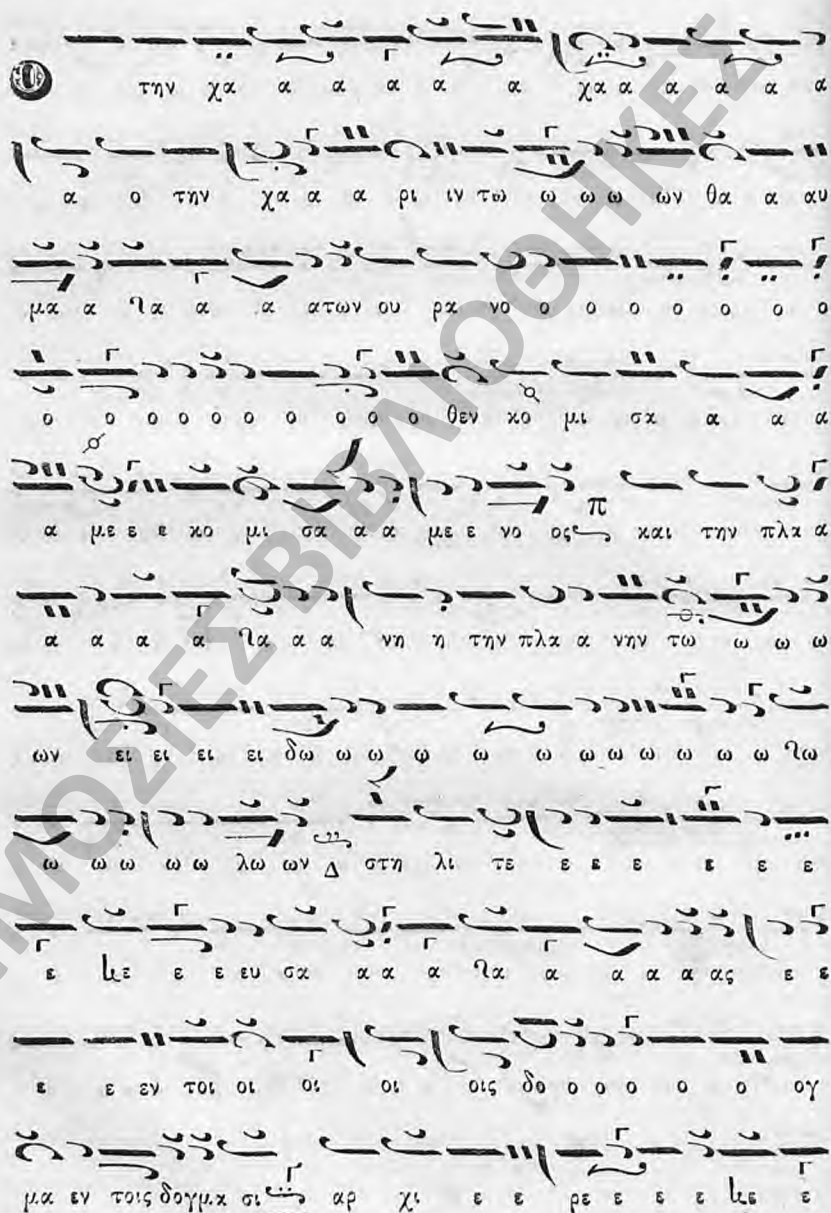 Ο την χα α α α α α χα α α α α α
α ο την χα α α ρι ιν τω ω ω ω ων θα α αυ
μα α α α α ατων ου ρα νο ο ο ο ο ο ο
ο ο ο ο ο ο ο ο ο ο θεν κο μι σα α α α
α με ε ε κο μι σα α α με ε νο ος π και την πλα α
α α α α α α νη η την πλα α νην τω ω ω ω
ων ει ει ει ει δω ω ω ω ω ω ω ω ω ω ω ω
ω ω ω ω ω λω ων Δ στη λι τε ε ε ε ε ε ε
ε ε ε ευ σα α α α α α α α ας ε ε
ε ε εν τοι οι οι οι οις δο ο ο ο ο ο ογ
μα εν τοις δογμα σι αρ χι ε ε ρε ε ε ε ε
ΔΗΜΟΣΙΕΣ ΒΙΒΛΙΟΘΗΚΕΣ